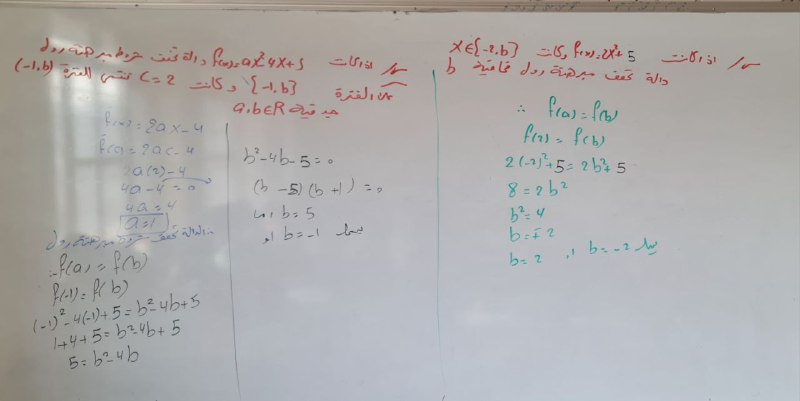 س/ اذا كانت f(x)=2x²+5 وكانت x∈{-2,b}
دالة تحقق مبرهنة رول فما قيمة b
∴ f(a)=f(b)
f(2)=f(b)
2(-2)²+5=2b²+5
8=2b²
b²=4
b=∓2
b=2 او b=-2 يهمل
س/ اذا كانت f(x)=ax²-4x+5 دالة تحقق شروط مبرهنة رول
الفترة {-1,b} وكانت c=2 تنتمي الفترة (-1,b)
جد قيمة a,b∈R
f(x)=2ax-4
f(c)=2ac-4
2a(2)-4
4a-4=0
4a=4
a=1
الدالة تحقق مبرهنة رول
∴f(a)=f(b)
f(-1)=f(b)
(-1)²-4(-1)+5=b²-4b+5
1+4+5=b²-4b+5
5=b²-4b
b²-4b-5=0
(b-5)(b+1)=0
اما b=5
او b=-1 يهمل